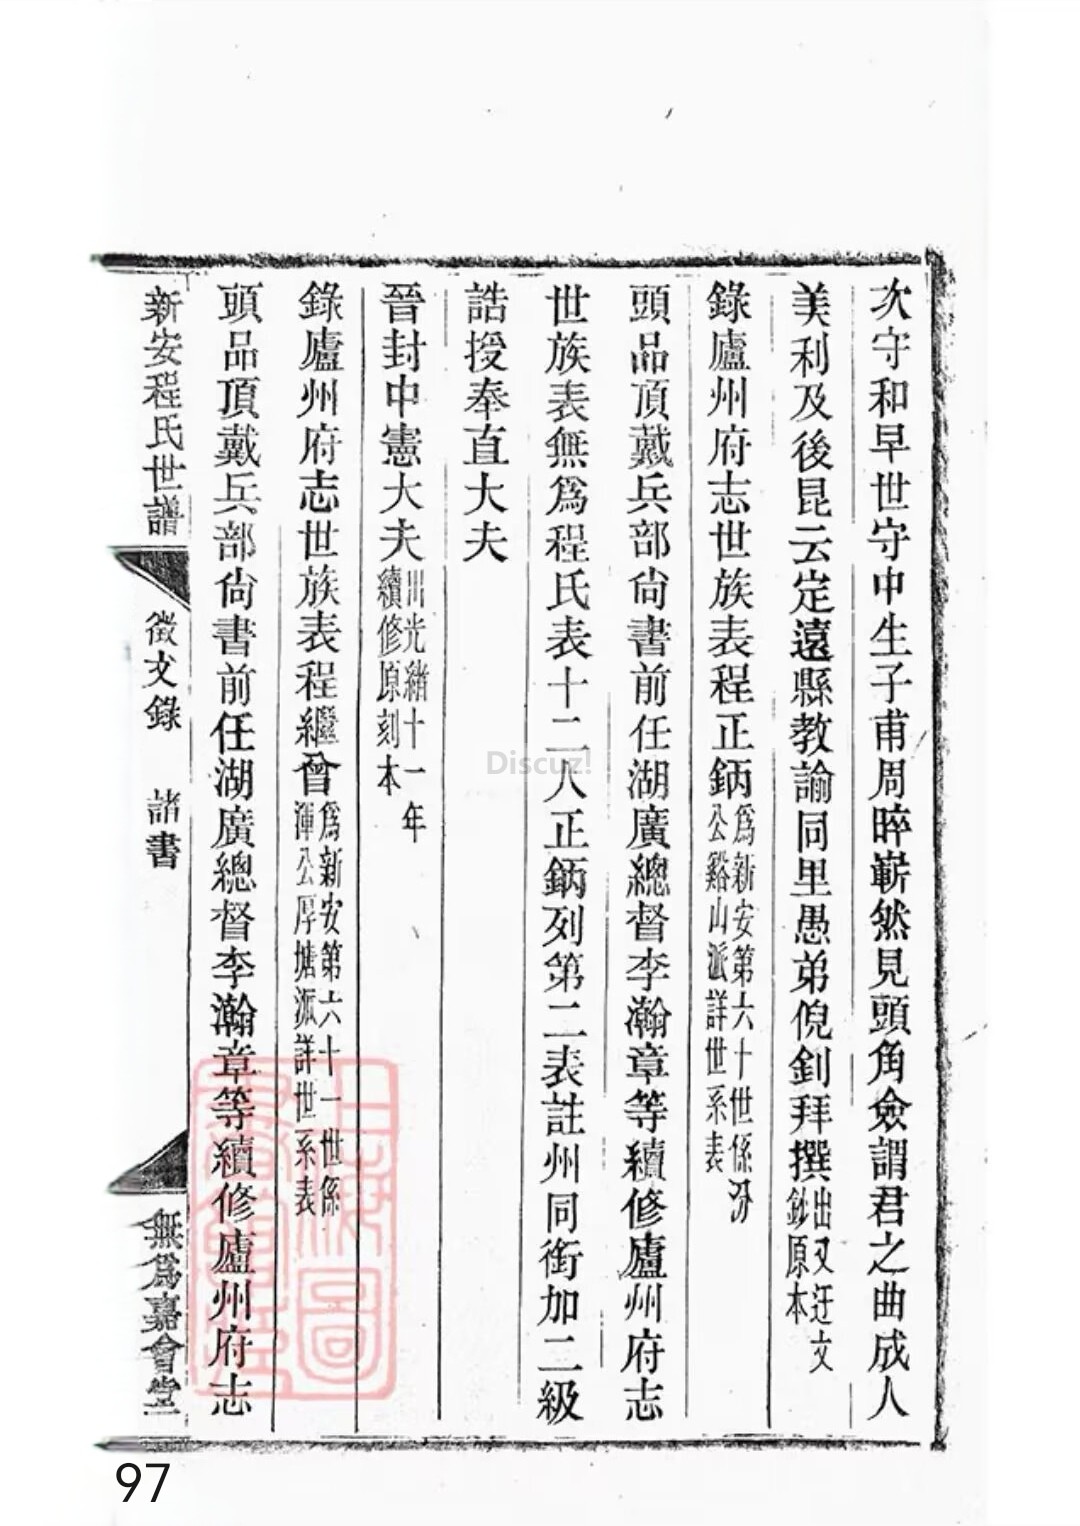 次守和早世守中生子甫周晬嶄然見頭角僉謂君之曲成人
美利及後昆云定遠縣教諭同里愚弟倪釗拜撰出又迂文
鈔原本
錄廬州府志世族表程正鈵為新安第六十世係汾
公谿山派詳世系表
頭品頂戴兵部尙書前任湖廣總督李瀚章等續修廬州府志
世族表無爲程氏表十二人正鈵列第二表註州同銜加二級
誥授奉直大夫
晉封中憲大夫出光緒十一年
續修原刻本
錄廬州府志世族表程繼曾爲新安第六十一世係
渾公厚塘派詳世系表
頭品頂戴兵部尙書前任湖廣總督李瀚章等續修廬州府志
新安程氏世譜 徵文錄 諸書 無爲嘉會堂
上海圖
書館藏
Discuz!
97